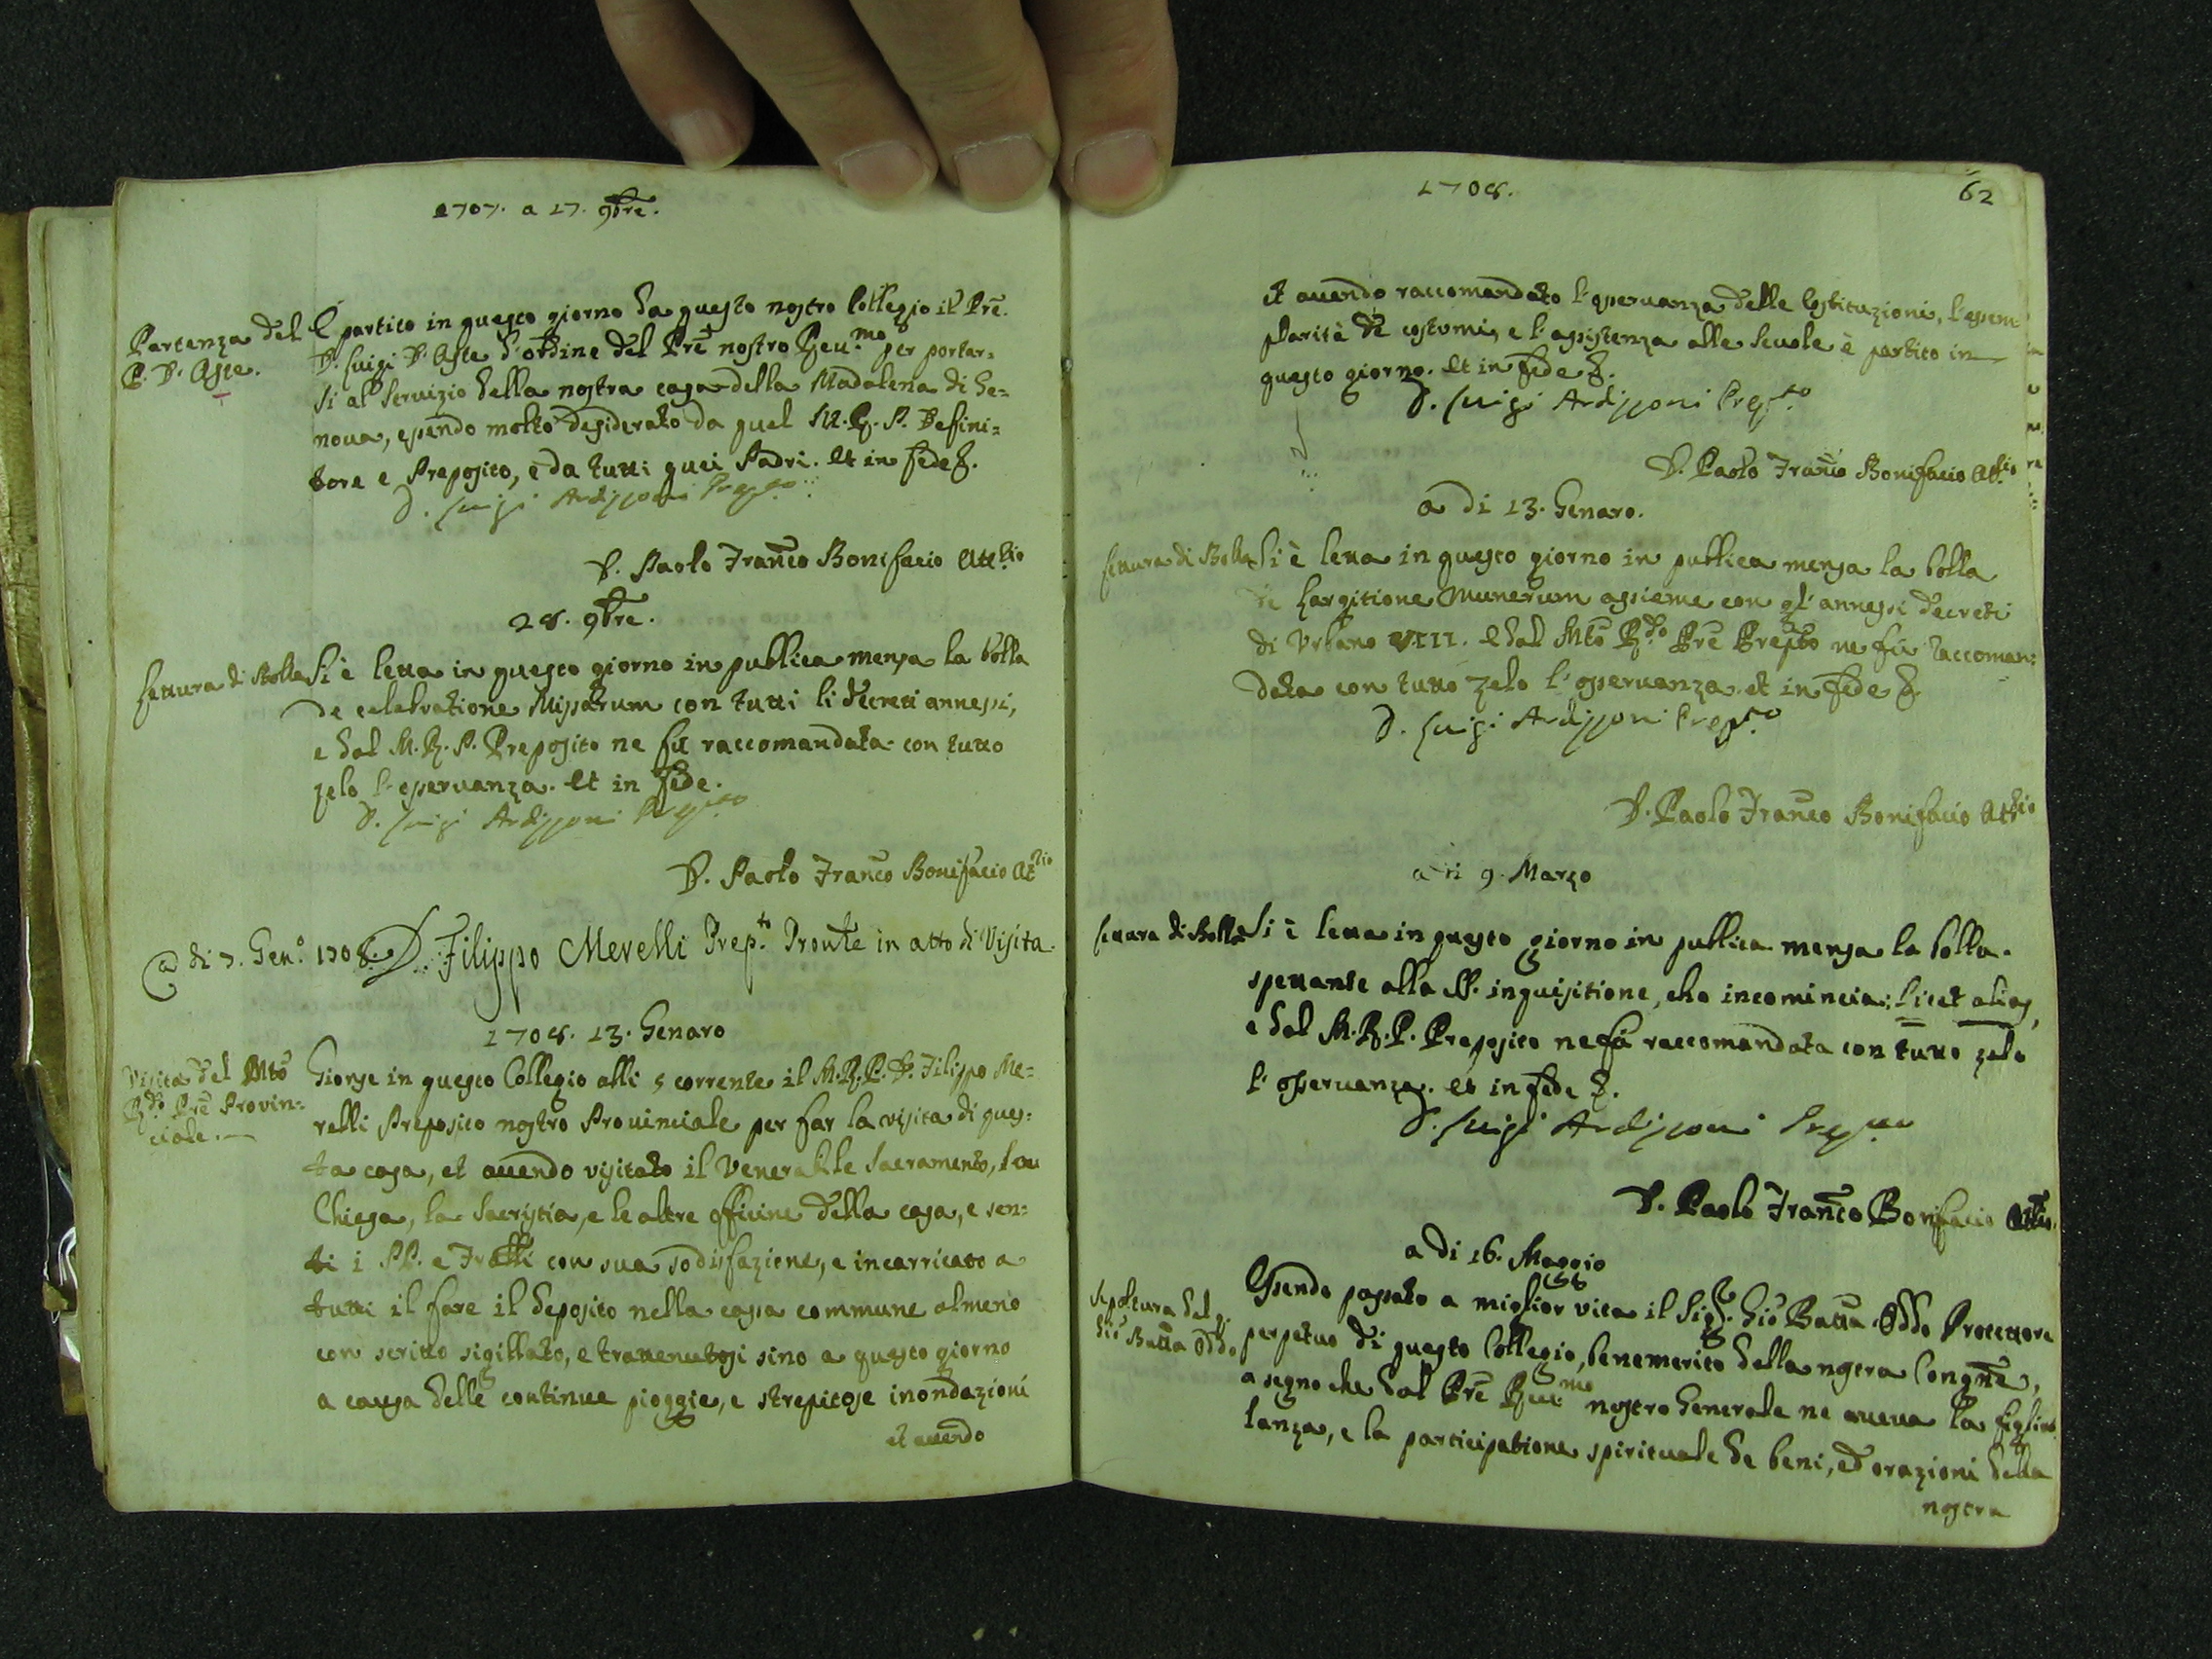 1707. a 17. 9bre.
Partenza del
P. D. Aste.
È partito in questo giorno da questo nostro Collegio il Pre.
D. Luigi D'Aste d'ordine del Pre nostro Reu.mo per portar=
si al servizio della nostra casa della Madalena di Ge=
noua, essendo molto desiderato da quel M. R. P. Defini=
tore e Preposito, e da tutti quei Padri. Et in fede &.
D. Luigi Ardizzoni Prep.to
D. Paolo Franco Bonifacio Att.rio
28. 9bre.
Lettura di Bolla
Si è letta in questo giorno in publica mensa la bolla
de celebratione Missarum con tutti li decreti annessi,
e dal M. R. P. Preposito ne fù raccomandata con tutto
zelo l'osseruanza. Et in fede.
D. Luigi Ardizzoni Prep.to
D. Paolo Franco Bonifacio Att.rio
@ di 7. Gen.o 1708. D. Filippo Merelli Prep.to Proule in atto di Visita.
1708. 13. Genaro
Visita del Mto
R.do Pre Provin=
ciale.
Giorse in questo Collegio alli 5 corrente il M. R. P. D. Filippo Me=
relli Preposito nostro Prouinciale per far la visita di ques=
ta casa, et auendo visitato il Venerabile Sacramento, la
Chiesa, la Sacristia, e le altre officine della casa, e sen=
ti i PP. e Fratelli con sua sodisfazione, e incarricato a
tutti il fare il deposito nella cassa commune almeno
con scritto sigillato, e trattenutosi sino a questo giorno
a causa delle continue pioggie, e strepitose inondazioni
et auendo
1708.
62
et auendo raccomandato l'osseruanza delle Costituzioni, l'esem
plarità de costumi, e l'assistenza alle scuole è partito in
questo giorno. Et in fede &.
D. Luigi Ardizzoni Prep.to
D. Paolo Franco Bonifacio Att.rio
a di 13. Genaro.
Lettura di Bolla
Si è letta in questo giorno in publica mensa la bolla
de Largitione Munerum assieme con gl'annessi decreti
di Vrbano VIII. e dal Mto R.do Pre Prepto ne fù raccoman=
data con tutto zelo l'osseruanza. et in fede &
D. Luigi Ardizzoni Prep.to
D. Paolo Franco Bonifacio Att.rio
a di 9. Marzo
Lettura di Bolla
Si è letta in questo giorno in publica mensa la bolla
spettante alla S. inquisitione, che incomincia: licet alias,
e dal M. R. P. Preposito ne fù raccomandata con tutto zelo
l'osseruanza. et in fede &.
D. Luigi Ardizzoni Prep.to
D. Paolo Franco Bonifacio Att.rio
a di 16. Maggio
Sepoltura del
Gio Batta Oddo
Essendo passato a miglior vita il Sig.r Gio Batta Oddo Protettore
perpetuo di questo Collegio, benemerito della nostra Congne,
a segno che dal Pre Reu.mo nostro Generale ne aueua la figliuo
lanza, e la participatione spirituale de beni, ed orazioni della
nostra